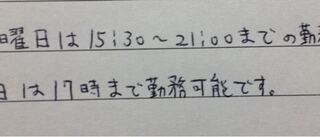 曜日は15:30~21:00までの勤
日は17時まで勤務可能です。